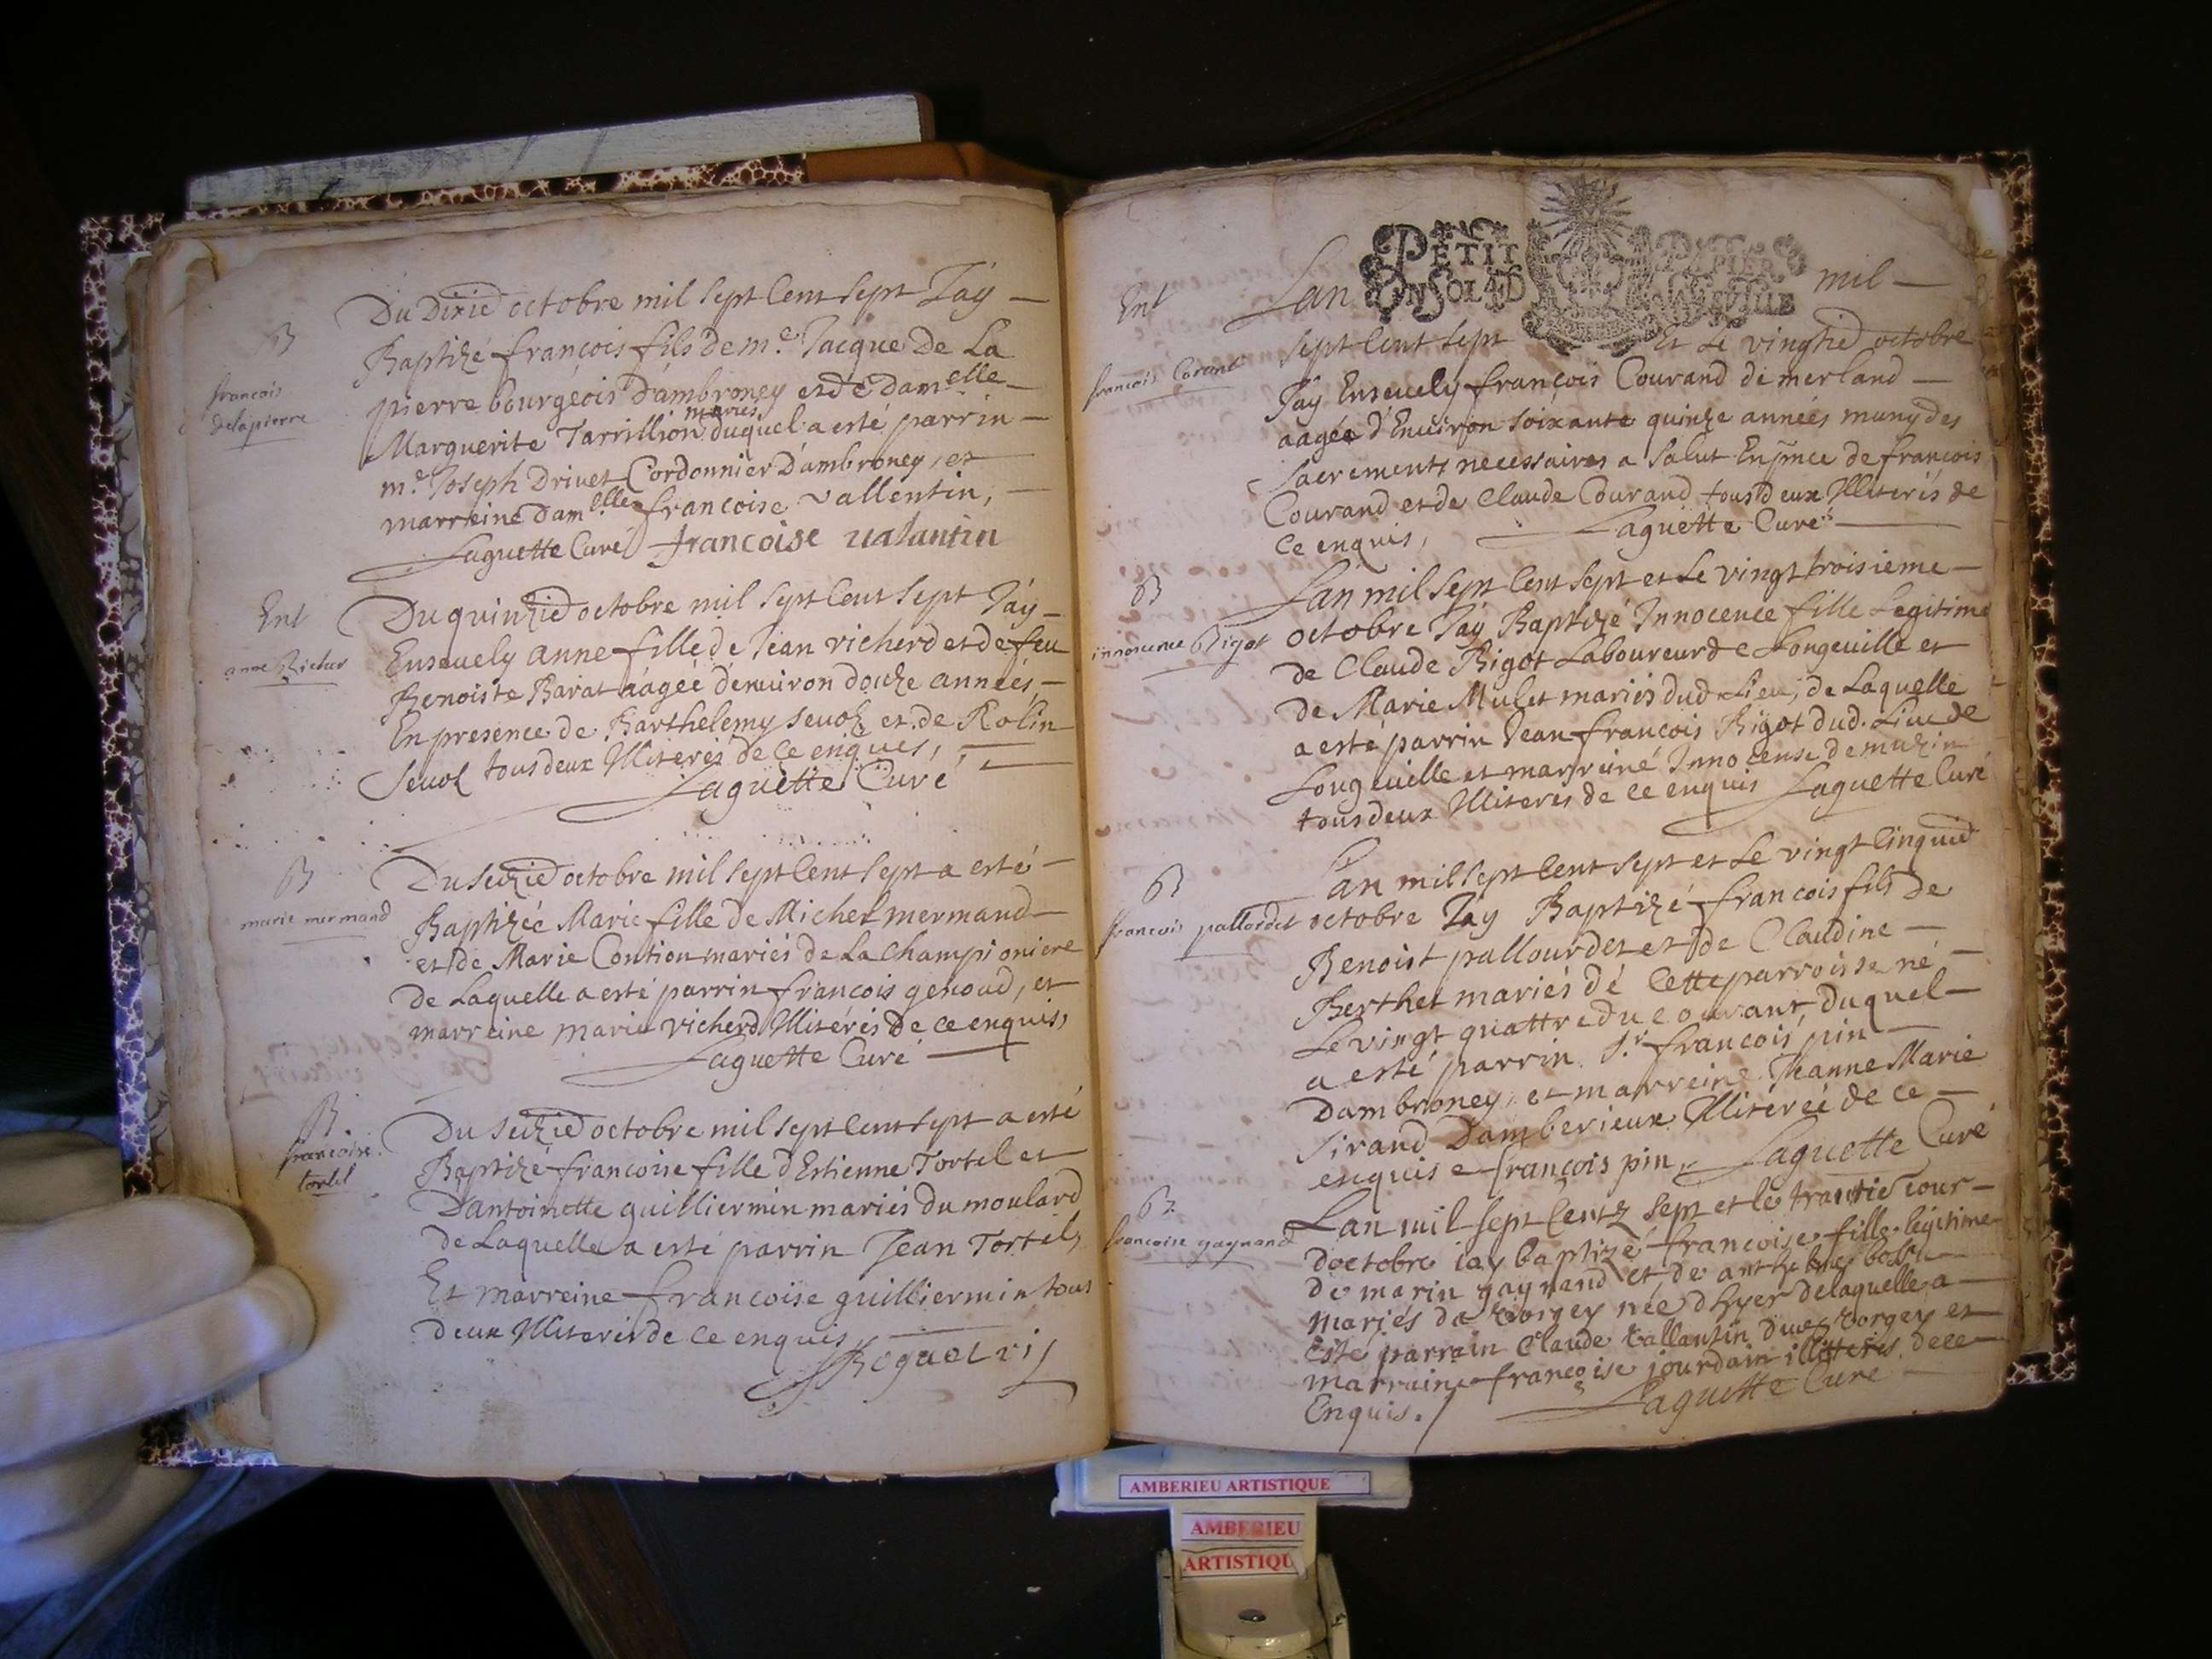 B
françois
delapierre
Du Dixie octobre mil sept Cent sept Jáy
Baptizé françois fils de m.e Jacque De La
pierre bourgeois D'ambroney et de Dam.elle
Marguerite Tarrillion mariés duquel a esté parrin
m.e Joseph Drivet Cordonnier D'ambroney, et
marreine Dam.elle francoise vallentin,
Laguette Curé francoise valantin
Ent
anne Richer
Du quinzie octobre mil Sept Cent Sept Jáy
Ensevely anne fille de Jean richerd et de feu
Benoiste Barat áagée d'environ douze années,
En presence de Barthelemy sevoz et de Rolin
Sevoz tous deux Illiterés de ce enquis,
Laguette Curé
B
marie mermand
Du Seizie octobre mil sept Cent Sept a esté
Baptizée Marie fille de Michel mermand
et de Marie Contion mariés de La Championiere
de Laquelle a esté parrin francois genoud, et
marreine marie richerd Illitérés de ce enquis,
Laguette Curé
B.
francoise
tortel
Du Seizie octobre mil sept Cent sept a esté
Baptizé francoise fille d'Estienne Tortel et
D'antoinette guilliermin mariés du moulard
de Laquelle a esté parrin Jean Tortel,
Et marreine francoise guilliermin tous
deux Illiterés de ce enquis,
Ent
francois Corand
Lan
PETIT PAPIER
UN SOL 4 D LA FEUILLE
mil
sept Cent Sept Et Le vingtie octobre
Jáy Ensevely françois Courand de merland
aagée d'Environ soixante quinze années muny des
Sacrements necessaires a Salut En pnce de francois
Courand et de Claude Courand tous deux Illiterés de
Ce enquis, Laguette Curé
B
innocence Bigot
Lan mil Sept Cent Sept et Le vingt troisieme
octobre Jáy Baptizé Innocence fille Legitime
de Claude Bigot Laboureur de Longeville et
de Marie Mulet mariés dud. Lieu, de Laquelle
a esté parrin Jean francois Bigot dud. Lieu de
Longeville et marreine Innocense demuzin
tous deux Illiterés de ce enquis Laguette Curé
B
francois pallordet
Lan mil Sept Cent Sept et Le vingt Cinquie
octobre Jáy Baptizé francois fils de
Benoist pallourdet et de Claudine
Berthet mariés de Cette parroisse né
Le vingt quattre du courant, duquel
a esté parrin S.r francois pin
Dambroney, et marreine Jeanne Marie
Sirand Damberieux Illiterée de ce
enquise françois pin, Laguette Curé
B.
francoise gagnand
Lan mil sept Centz sept et le trantie iour
doctobre iay baptizé francoise fille legitime
de marin gagnand et de
mariés de vorgey née dhyer delaquelle a
esté parrain Claude vallantin vorgey et
marraine francoise jourdain illitterés dece
Enquis. / Laguette Curé
AMBERIEU ARTISTIQUE
AMBERIEU
ARTISTIQU